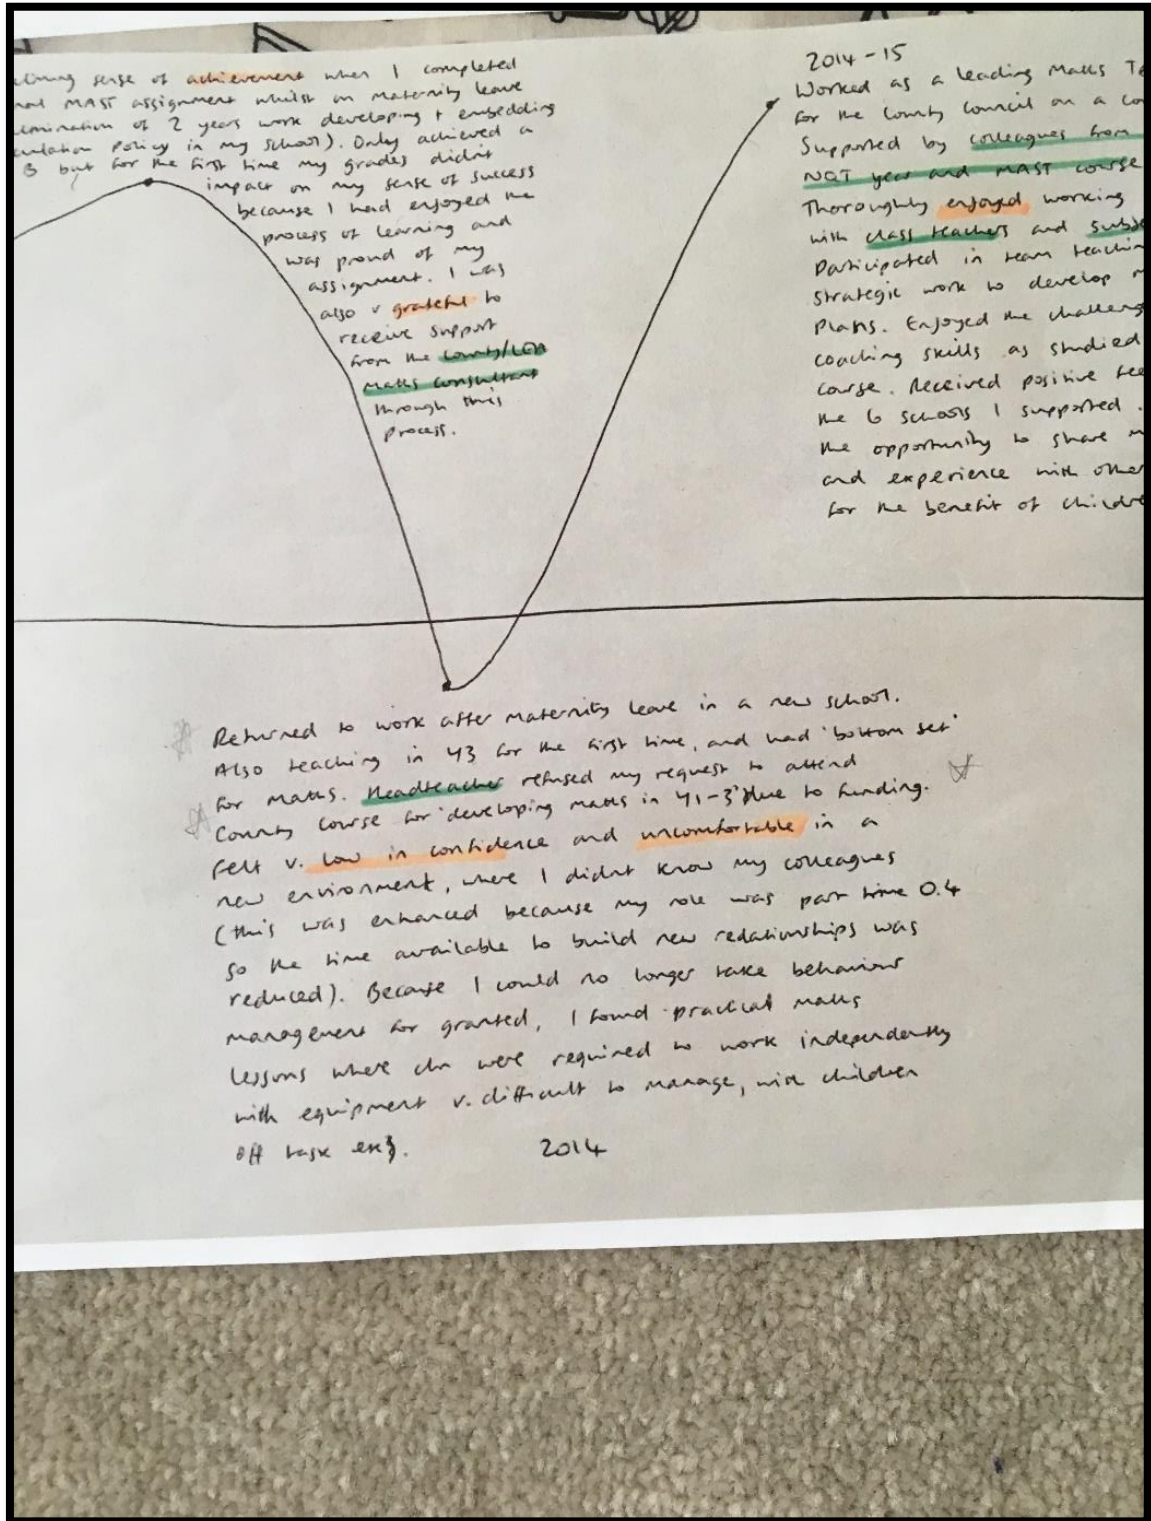 sense of achievement when I completed
MAST assignment whilst on maternity leave
of 2 years work developing + embedding
Policy in my school). Only achieved a
B but for the first time my grades didn't
impact on my sense of success
because I had enjoyed the
process of learning and
was proud of my
assignment. I was
also v grateful to
receive support
from the County/LEA
Maths Consultant
through this
process.
2014-15
Worked as a leading Maths
for the County Council on a
Supported by colleagues from
NQT year and MAST course
Thoroughly enjoyed working
with class teachers and
Participated in team
strategic work to develop
Plans. Enjoyed the
coaching skills as studied
course. Received positive
the 6 schools I supported.
the opportunity to share
and experience with
for the benefit of
Returned to work after maternity leave in a new school.
Also teaching in Y3 for the first time, and had 'bottom set'
for maths. Headteacher refused my request to attend
County Course for 'developing maths in Y1-3' due to funding.
Felt v. low in confidence and uncomfortable in a
new environment, where I didn't know my colleagues
(this was enhanced because my role was part time 0.4
so the time available to build new relationships was
reduced). Because I could no longer take behaviour
management for granted, I found practical maths
lessons where chn were required to work independently
with equipment v. difficult to manage, with children
off task etc}.
2014